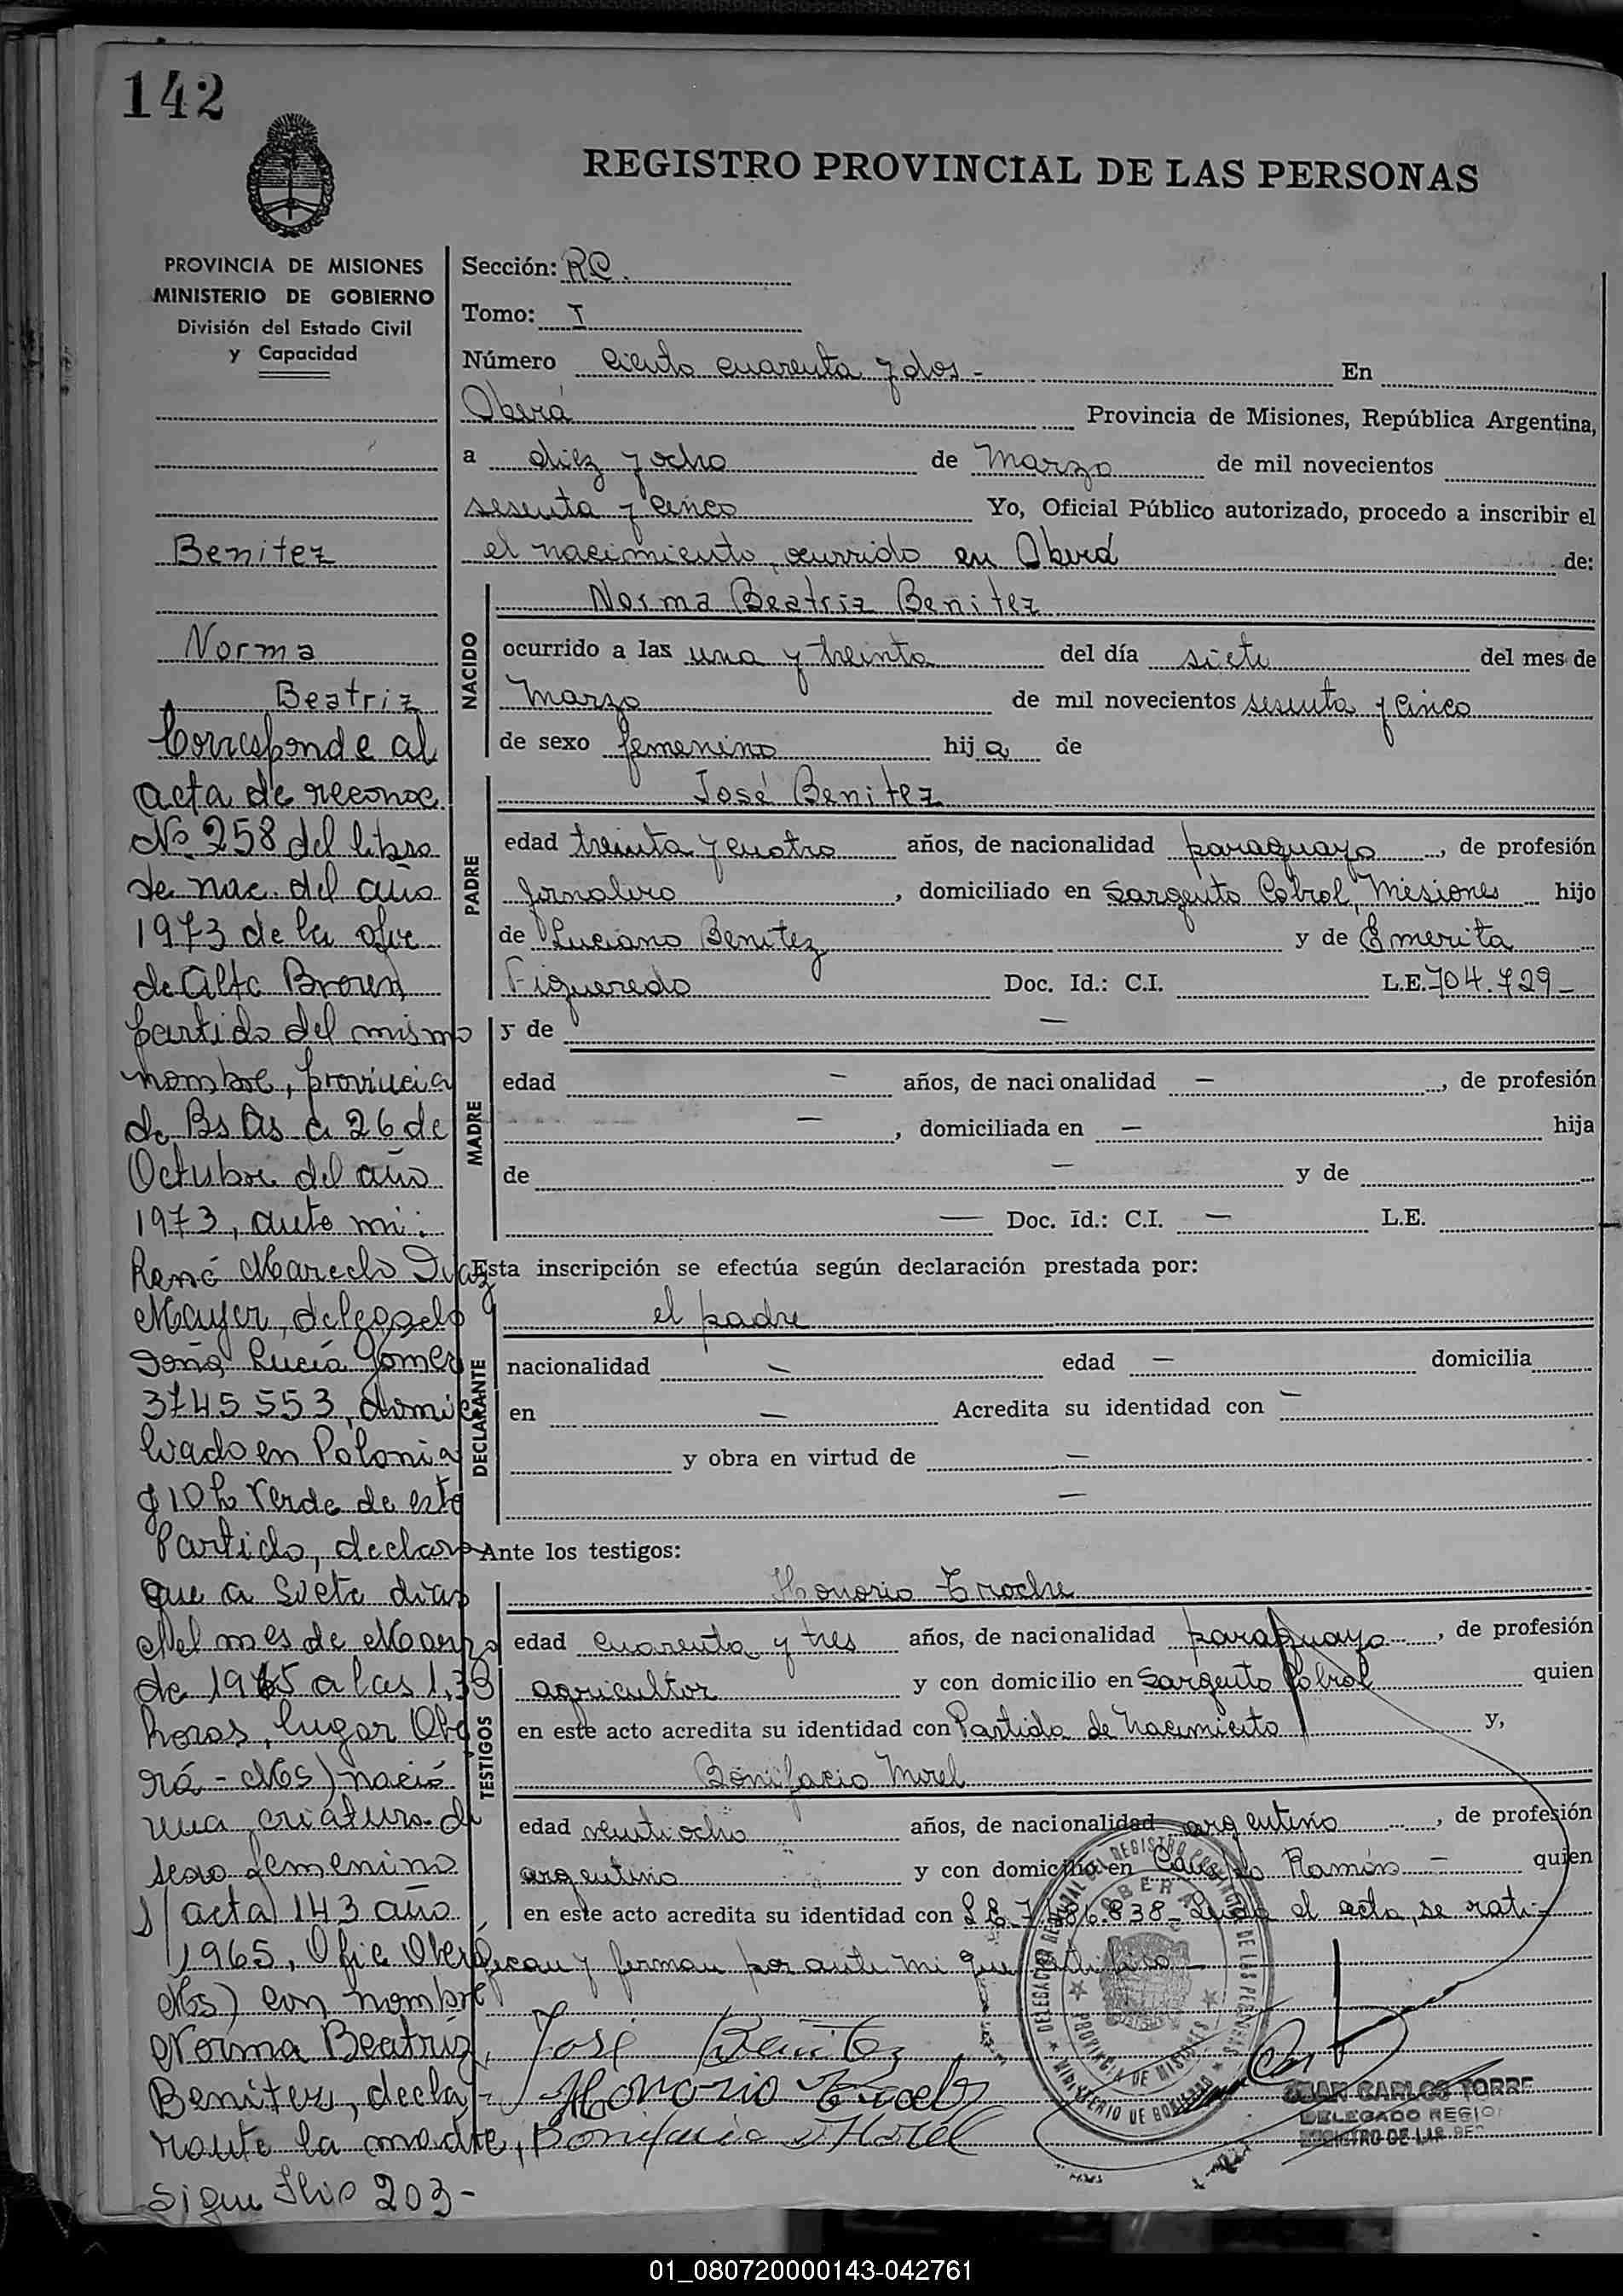 142
REGISTRO PROVINCIAL DE LAS PERSONAS
PROVINCIA DE MISIONES
MINISTERIO DE GOBIERNO
División del Estado Civil
y Capacidad
Benitez
Norma
Beatriz
Corresponde al
acta de reconoc.
No. 258 del libro
de nac. del año
1973 de la ofic
de Alte Brown
partido del mismo
nombre, provincia
de Bs As a 26 de
Octubre del año
1973, ante mi:
René Marcelo Diaz
Mayer, delegado
Doña Lucía Gomez
3745553, domici
liado en Polonia
y 10 L. Verde de este
Partido, declara
que a siete dias
del mes de Marzo
de 1965 a las 1,30
horas, lugar Obe
rá - Mis) nació
una criatura de
sexo femenino
s/ acta) 143 año
1965, Ofic Oberá
Mis) con nombre
Norma Beatriz
Benitez, decla-
rante la madre,
Sigue Flio 203-
Sección: RC.
Tomo: I
Número ciento cuarenta y dos - En
Oberá Provincia de Misiones, República Argentina,
a diez y ocho de Marzo de mil novecientos
sesenta y cinco Yo, Oficial Público autorizado, procedo a inscribir el
el nacimiento, ocurrido en Oberá de:
NACIDO
Norma Beatriz Benitez
ocurrido a las una y treinta del día siete del mes de
Marzo de mil novecientos sesenta y cinco
de sexo femenino hija de
PADRE
José Benitez
edad treinta y cuatro años, de nacionalidad paraguayo, de profesión
jornalero, domiciliado en Sargento Cabral, Misiones hijo
de Luciano Benitez y de Emerita
Figueredo Doc. Id.: C.I. L.E. 704.729-
MADRE
y de —
edad — años, de nacionalidad —, de profesión
—, domiciliada en — hija
de — y de
— Doc. Id.: C.I. — L.E.
Esta inscripción se efectúa según declaración prestada por:
DECLARANTE
el padre
nacionalidad — edad — domicilia
en — Acredita su identidad con —
y obra en virtud de —
—
Ante los testigos:
TESTIGOS
Honorio Troche
edad cuarenta y tres años, de nacionalidad paraguayo, de profesión
agricultor y con domicilio en Sargento Cabral quien
en este acto acredita su identidad con Partida de Nacimiento y,
Bonifacio Morel
edad veintiocho años, de nacionalidad argentino, de profesión
argentino y con domicilio en Ramón — quien
en este acto acredita su identidad con L.E. 838- Leida el acta, se rati-
fican y firman por ante mi que
José Benitez
Honorio Troche
Bonifacio Morel
DELEGACION REGIONAL DEL REGISTRO PROVINCIAL DE LAS PERSONAS
OBERA
PROVINCIA DE MISIONES
MINISTERIO DE GOBIERNO
JUAN CARLOS TORRE
DELEGADO REGIO
REGISTRO DE LAS PER
01_080720000143-042761